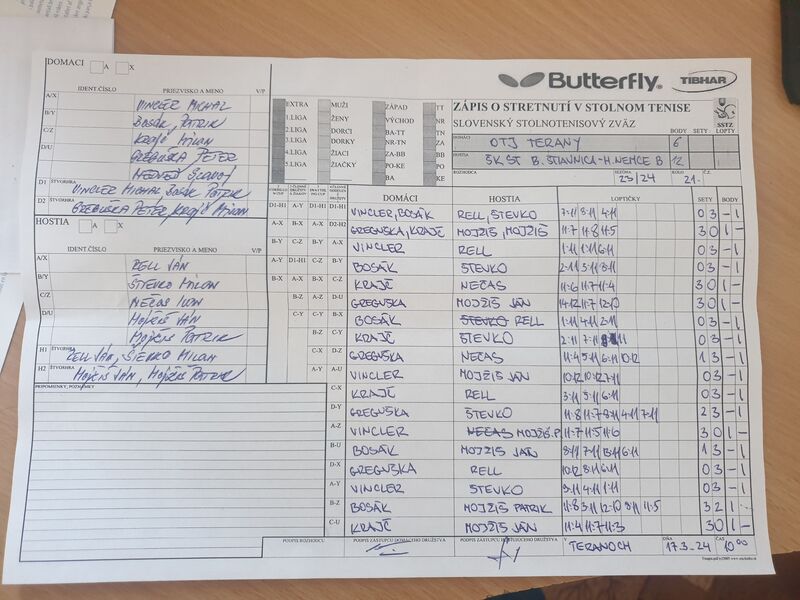 DOMÁCI A X
IDENT.ČÍSLO PRIEZVISKO A MENO V/P
A/X VINCLER MICHAL
B/Y BOSÁK, PATRIK
C/Z KRAJČ MILAN
D/U GREGUŠKA PETER
D1 ŠTVORHRA VINCLER MICHAL, BOSÁK PATRIK
D2 ŠTVORHRA GREGUŠKA PETER, KRAJČ MILAN
HOSTIA A X
IDENT.ČÍSLO PRIEZVISKO A MENO V/P
A/X RELL JÁN
B/Y ŠTEVKO MILAN
C/Z NEČAS IVAN
D/U MOJŽIŠ JÁN
MOJŽIŠ PATRIK
H1 ŠTVORHRA RELL JÁN, ŠTEVKO MILAN
H2 ŠTVORHRA MOJŽIŠ JÁN, MOJŽIŠ PATRIK
PRIPOMIENKY, POZNÁMKY
Butterfly TIBHAR
EXTRA MUŽI ZÁPAD TT
1.LIGA ŽENY VÝCHOD NR
2.LIGA DORCI BA-TT TN
3.LIGA DORKY NR-TN ZA
4.LIGA ŽIACI ZA-BB BB
5.LIGA ŽIAČKY PO-KE PO
BA KE
ZÁPIS O STRETNUTÍ V STOLNOM TENISE
SLOVENSKÝ STOLNOTENISOVÝ ZVÄZ SSTZ
BODY SETY LOPTY
DOMÁCI OTJ TERANY 6
HOSTIA ŠKST B. ŠTIAVNICA-H.NEMCE B 12
ROZHODCA SEZÓNA 23/24 KOLO 21. Č.Z.
DOMÁCI HOSTIA LOPTIČKY SETY BODY
D1-H1 VINCLER, BOSÁK RELL, ŠTEVKO 7:11 3:11 4:11 0 3 - 1
D2-H2 GREGUŠKA, KRAJČ MOJŽIŠ, MOJŽIŠ 11:7 11:8 11:5 3 0 1 -
A-X VINCLER RELL 1:11 1:11 6:11 0 3 - 1
B-Y BOSÁK ŠTEVKO 2:11 5:11 3:11 0 3 - 1
C-Z KRAJČ NEČAS 11:6 11:7 11:4 3 0 1 -
D-U GREGUŠKA MOJŽIŠ JÁN 14:12 11:7 12:10 3 0 1 -
B-X BOSÁK ŠTEVKO RELL 1:11 4:11 2:11 0 3 - 1
C-Y KRAJČ ŠTEVKO 2:11 7:11 0 3 - 1
D-Z GREGUŠKA NEČAS 11:4 5:11 6:11 10:12 1 3 - 1
A-U VINCLER MOJŽIŠ JÁN 10:12 10:12 7:11 0 3 - 1
C-X KRAJČ RELL 3:11 5:11 6:11 0 3 - 1
D-Y GREGUŠKA ŠTEVKO 11:8 11:7 8:11 4:11 7:11 2 3 - 1
A-Z VINCLER NEČAS MOJŽIŠ P. 11:7 11:5 11:6 3 0 1 -
B-U BOSÁK MOJŽIŠ JÁN 1 3 - 1
D-X GREGUŠKA RELL 10:12 8:11 6:11 0 3 - 1
A-Y VINCLER ŠTEVKO 9:11 4:11 1:11 0 3 - 1
B-Z BOSÁK MOJŽIŠ PATRIK 11:8 3:11 12:10 9:11 11:5 3 2 1 -
C-U KRAJČ MOJŽIŠ JÁN 11:4 11:7 11:3 3 0 1 -
PODPIS ROZHODCU PODPIS ZÁSTUPCU DOMÁCEHO DRUŽSTVA PODPIS ZÁSTUPCU HOSŤUJÚCEHO DRUŽSTVA V TERANOCH DŇA 17.3.24 ČAS 10 00